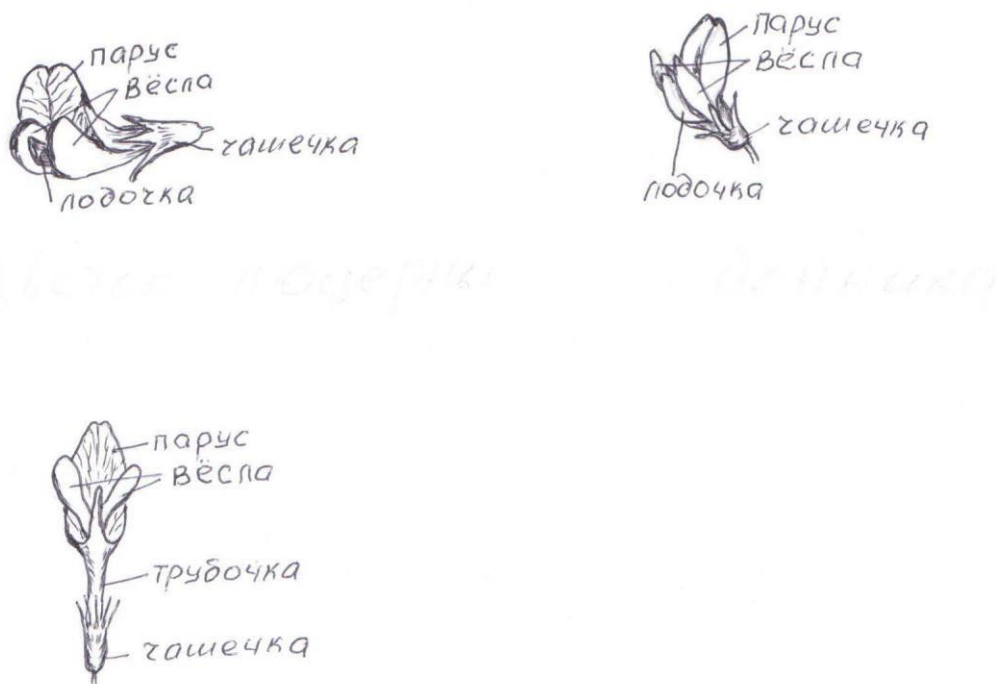 парус
вёсла
чашечка
лодочка
парус
вёсла
чашечка
лодочка
парус
вёсла
трубочка
чашечка